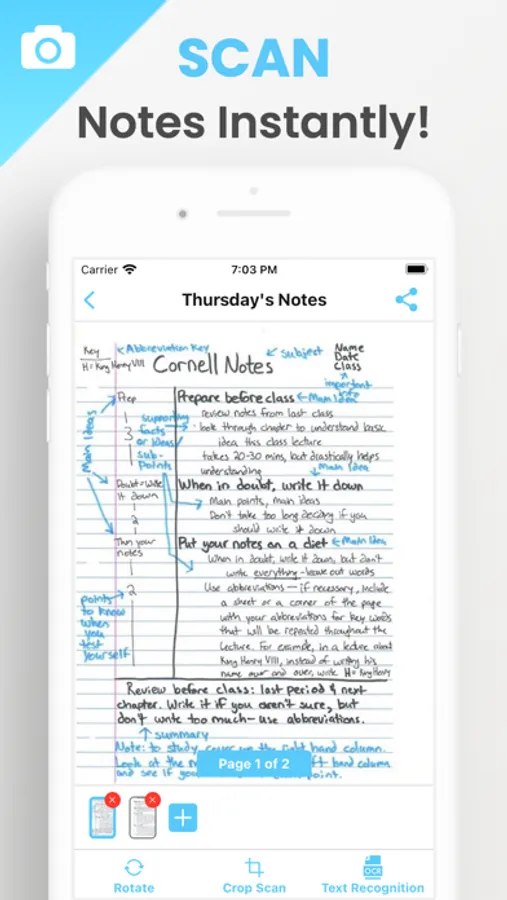 SCAN
Notes Instantly!
Carrier
7:03 PM
Thursday's Notes
Key
H = King Henry VIII
Abbreviation Key
Cornell Notes
subject
Name
Date
Class
important
info
Prep
1
3
1
supporting
facts
or ideas
sub-
points
Main Ideas
Prepare before class
Main Idea
review notes from last class
· look through chapter to understand basic
idea this class lecture
takes 20-30 mins, but drastically helps
understanding
Main Idea
Doubt=Write
it down
1
2
1
When in doubt, write it down
Main points, main ideas
Don't take too long deciding if you
should write it down
Thin your
notes
1
2
Put your notes on a diet
Main Idea
When in doubt, write it down, but don't
write everything - leave out words
Use abbreviations - if necessary, include
a sheet or a corner of the page
with your abbreviations for key words
that will be repeated throughout the
lecture. For example, in a lecture about
King Henry VIII, instead of writing his
name over and over, write H = King Henry
points
to know
when
you
test
yourself
Review before class: last period & next
chapter. Write it if you aren't sure, but
don't write too much - use abbreviations.
summary
Note: to study, cover up the right hand column.
Look at the left hand column
and see if you point.
Page 1 of 2
Rotate
Crop Scan
OCR
Text Recognition